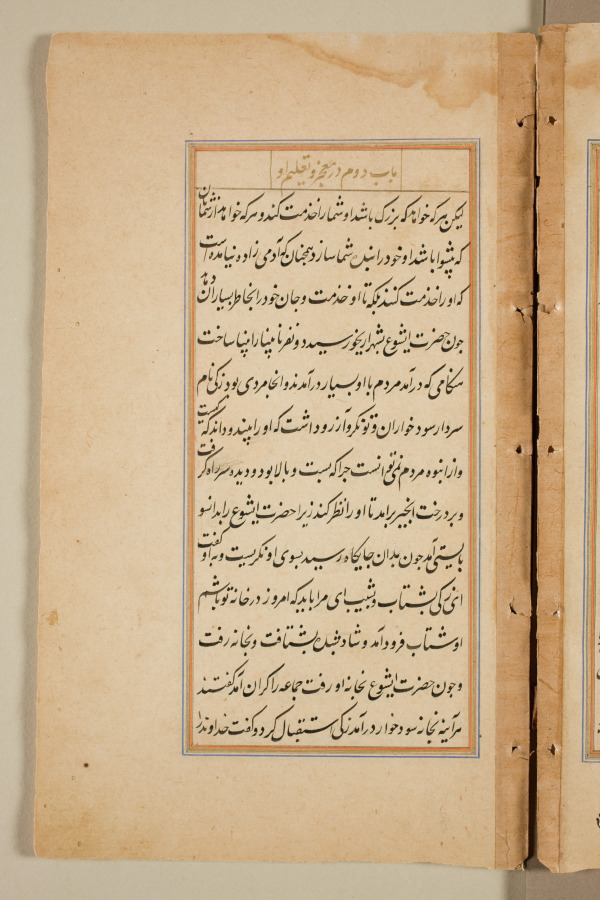 باب دوم در معجز و تعلیم او
لیکن هر که خواهد که بزرک باشد او شما را خدمت کند و هر که خواهد از شمایان
که پیشوا باشد او خود را شما سازد همچنان که آدمی زاده نیامده است
که او را خدمت کنند بلکه تا او خدمت و جان خود را بخاطر بسیاران دهد
جون حضرت ایشوع بشهر اریخو رسید دو نفر نابینا را بینا ساخت
هنکامی که در آمد مردم با او بسیار در آمدند و انجا مردی بود زکی نام
سردار سود خواران و تونکر و آرزو داشت که او را ببیند و داند که کیست
و از انبوه مردم نمی توانست جرا که پست و بالا بود و دیده سر راه کرفت
و بر درخت انجیر برامد تا او را نظر کند زیرا حضرت ایشوع را بدانسو
بایستی آمد جون بدان جایکاه رسید بسوی او نکریست و به او کفت
ای زکی بشتاب و بشیب ای مرا باید که امروز در خانه تو باشم
او شتاب فرود آمد و شاد بشتافت و بخانه رفت
و جون حضرت ایشوع بخانه او رفت جماعه را کران آمد کفتند
هر آینه بخانه سود خوار در آمد زکی استقبال کرد و کفت خداوندا